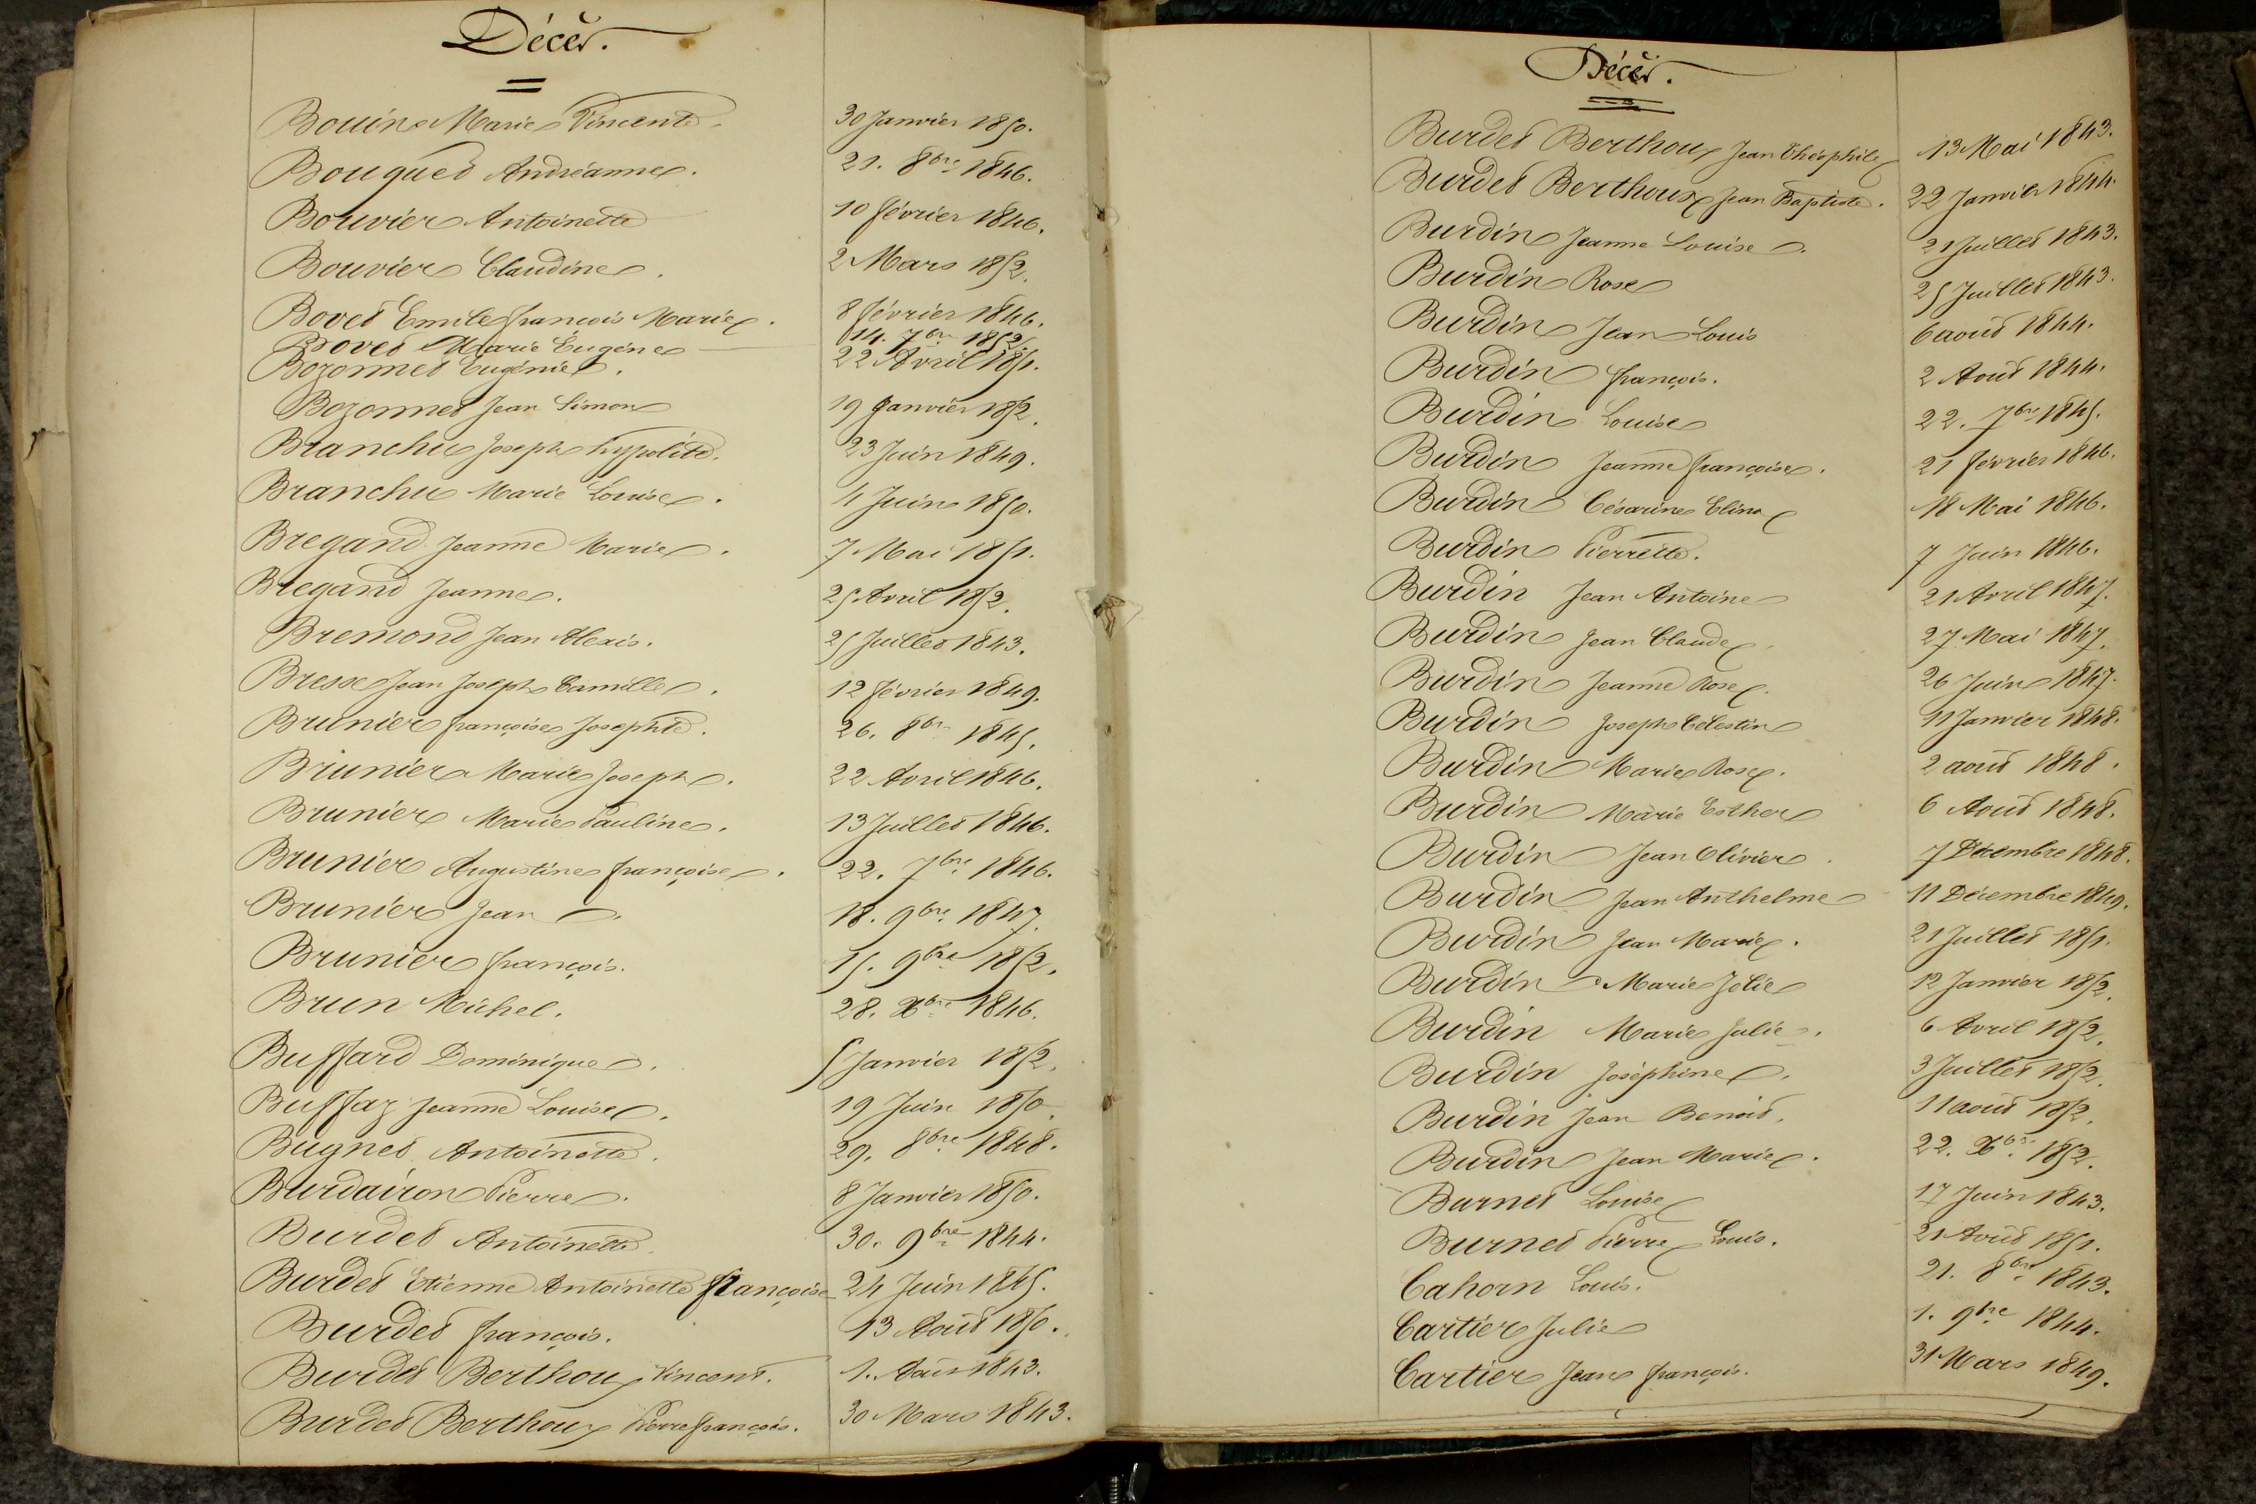 Décès.
Bouin Marie Vincente 30 Janvier 1850.
Bouquet Andréanne. 21. 8bre 1846.
Bouvier Antoinette 10 février 1846.
Bouvier Claudine. 2 Mars 1852.
Bovet Emile françois Marie. 8 février 1846.
Bovet Marie Eugène 14. 7bre 1852.
Bozonnet Eugénie. 22 Avril 1851.
Bozonnet Jean Simon 19 Janvier 1852.
Branche Joseph hypolite. 23 Juin 1849.
Branche Marie Louise. 4 Juin 1850.
Bregand Jeanne Marie. 7 Mai 1851.
Bregand Jeanne. 25 Avril 1852.
Bremond Jean Alexis. 25 Juillet 1843.
Bresse Jean Joseph Camille. 12 février 1849.
Brunier françoise Josephte. 26. 8bre 1845.
Brunier Marie Joseph. 22 Avril 1846.
Brunier Marie Pauline. 13 Juillet 1846.
Brunier Augustine françoise. 22. 7bre 1846.
Brunier Jean. 18. 9bre 1847.
Brunier françois. 15. 9bre 1852.
Brun Michel. 28. Xbre 1846.
Buffard Dominique. 5 Janvier 1852.
Buffaz Jeanne Louise. 19 Juin 1850.
Bugnet Antoinette. 29. 8bre 1848.
Burdairon Pierre. 8 Janvier 1850.
Burdet Antoinette. 30. 9bre 1844.
Burdet Etienne Antoinette françoise 24 Juin 1845.
Burdet françois. 13 Août 1850.
Burdet Berthoux Vincent. 1. Août 1843.
Burdet Berthoux Pierre françois. 30 Mars 1843.
Décès.
Burdet Berthoux Jean Théophile 13 Mai 1843.
Burdet Berthoux Jean Baptiste. 22 Janvier 1844.
Burdin Jeanne Louise. 21 Juillet 1843.
Burdin Rose 25 Juillet 1843.
Burdin Jean Louis 6 août 1844.
Burdin françois. 2 Août 1844.
Burdin Louise 22. 7bre 1845.
Burdin Jeanne françoise. 21 février 1846.
Burdin Césarine Elina 18 Mai 1846.
Burdin Pierrette. 7 Juin 1846.
Burdin Jean Antoine 21 Avril 1847.
Burdin Jean Claude 27 Mai 1847.
Burdin Jeanne Rose. 26 Juin 1847.
Burdin Joseph Célestin 11 Janvier 1848.
Burdin Marie Rose. 2 août 1848.
Burdin Marie Esther 6 Août 1848.
Burdin Jean Olivier. 7 Décembre 1848.
Burdin Jean Anthelme 11 Décembre 1849.
Burdin Jean Marie. 21 Juillet 1851.
Burdin Marie Zélie 12 Janvier 1852.
Burdin Marie Julie. 6 Avril 1852.
Burdin Joséphine. 3 Juillet 1852.
Burdin Jean Benoit. 11 août 1852.
Burdin Jean Marie. 22. Xbre 1852.
Burnet Louise 17 Juin 1843.
Burnet Pierre Louis. 21 Août 1851.
Cahorn Louis. 21. 8bre 1843.
Cartier Julie 1. 9bre 1844.
Cartier Jean françois. 31 Mars 1849.